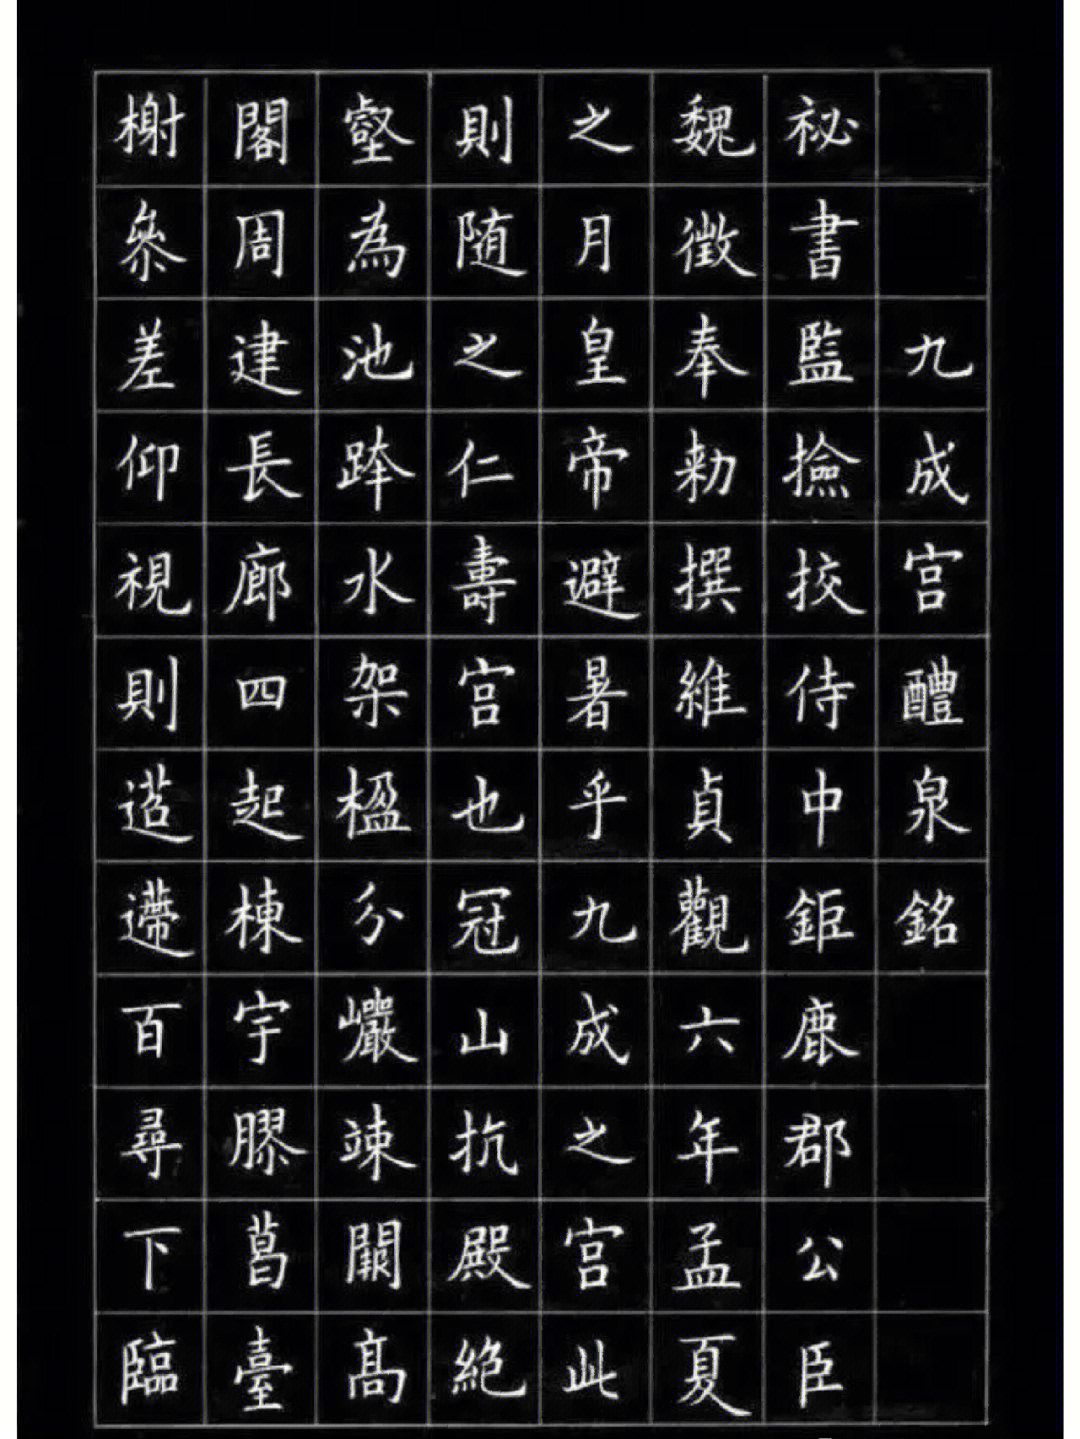 九成宮醴泉銘
祕書監撿挍侍中鉅鹿郡公臣
魏徵奉勑撰維貞觀六年孟夏
之月皇帝避暑乎九成之宮此
則随之仁壽宮也冠山抗殿絶
壑為池跨水架楹分巗竦闕高
閣周建長廊四起棟宇膠葛臺
榭參差仰視則迢遰百尋下臨